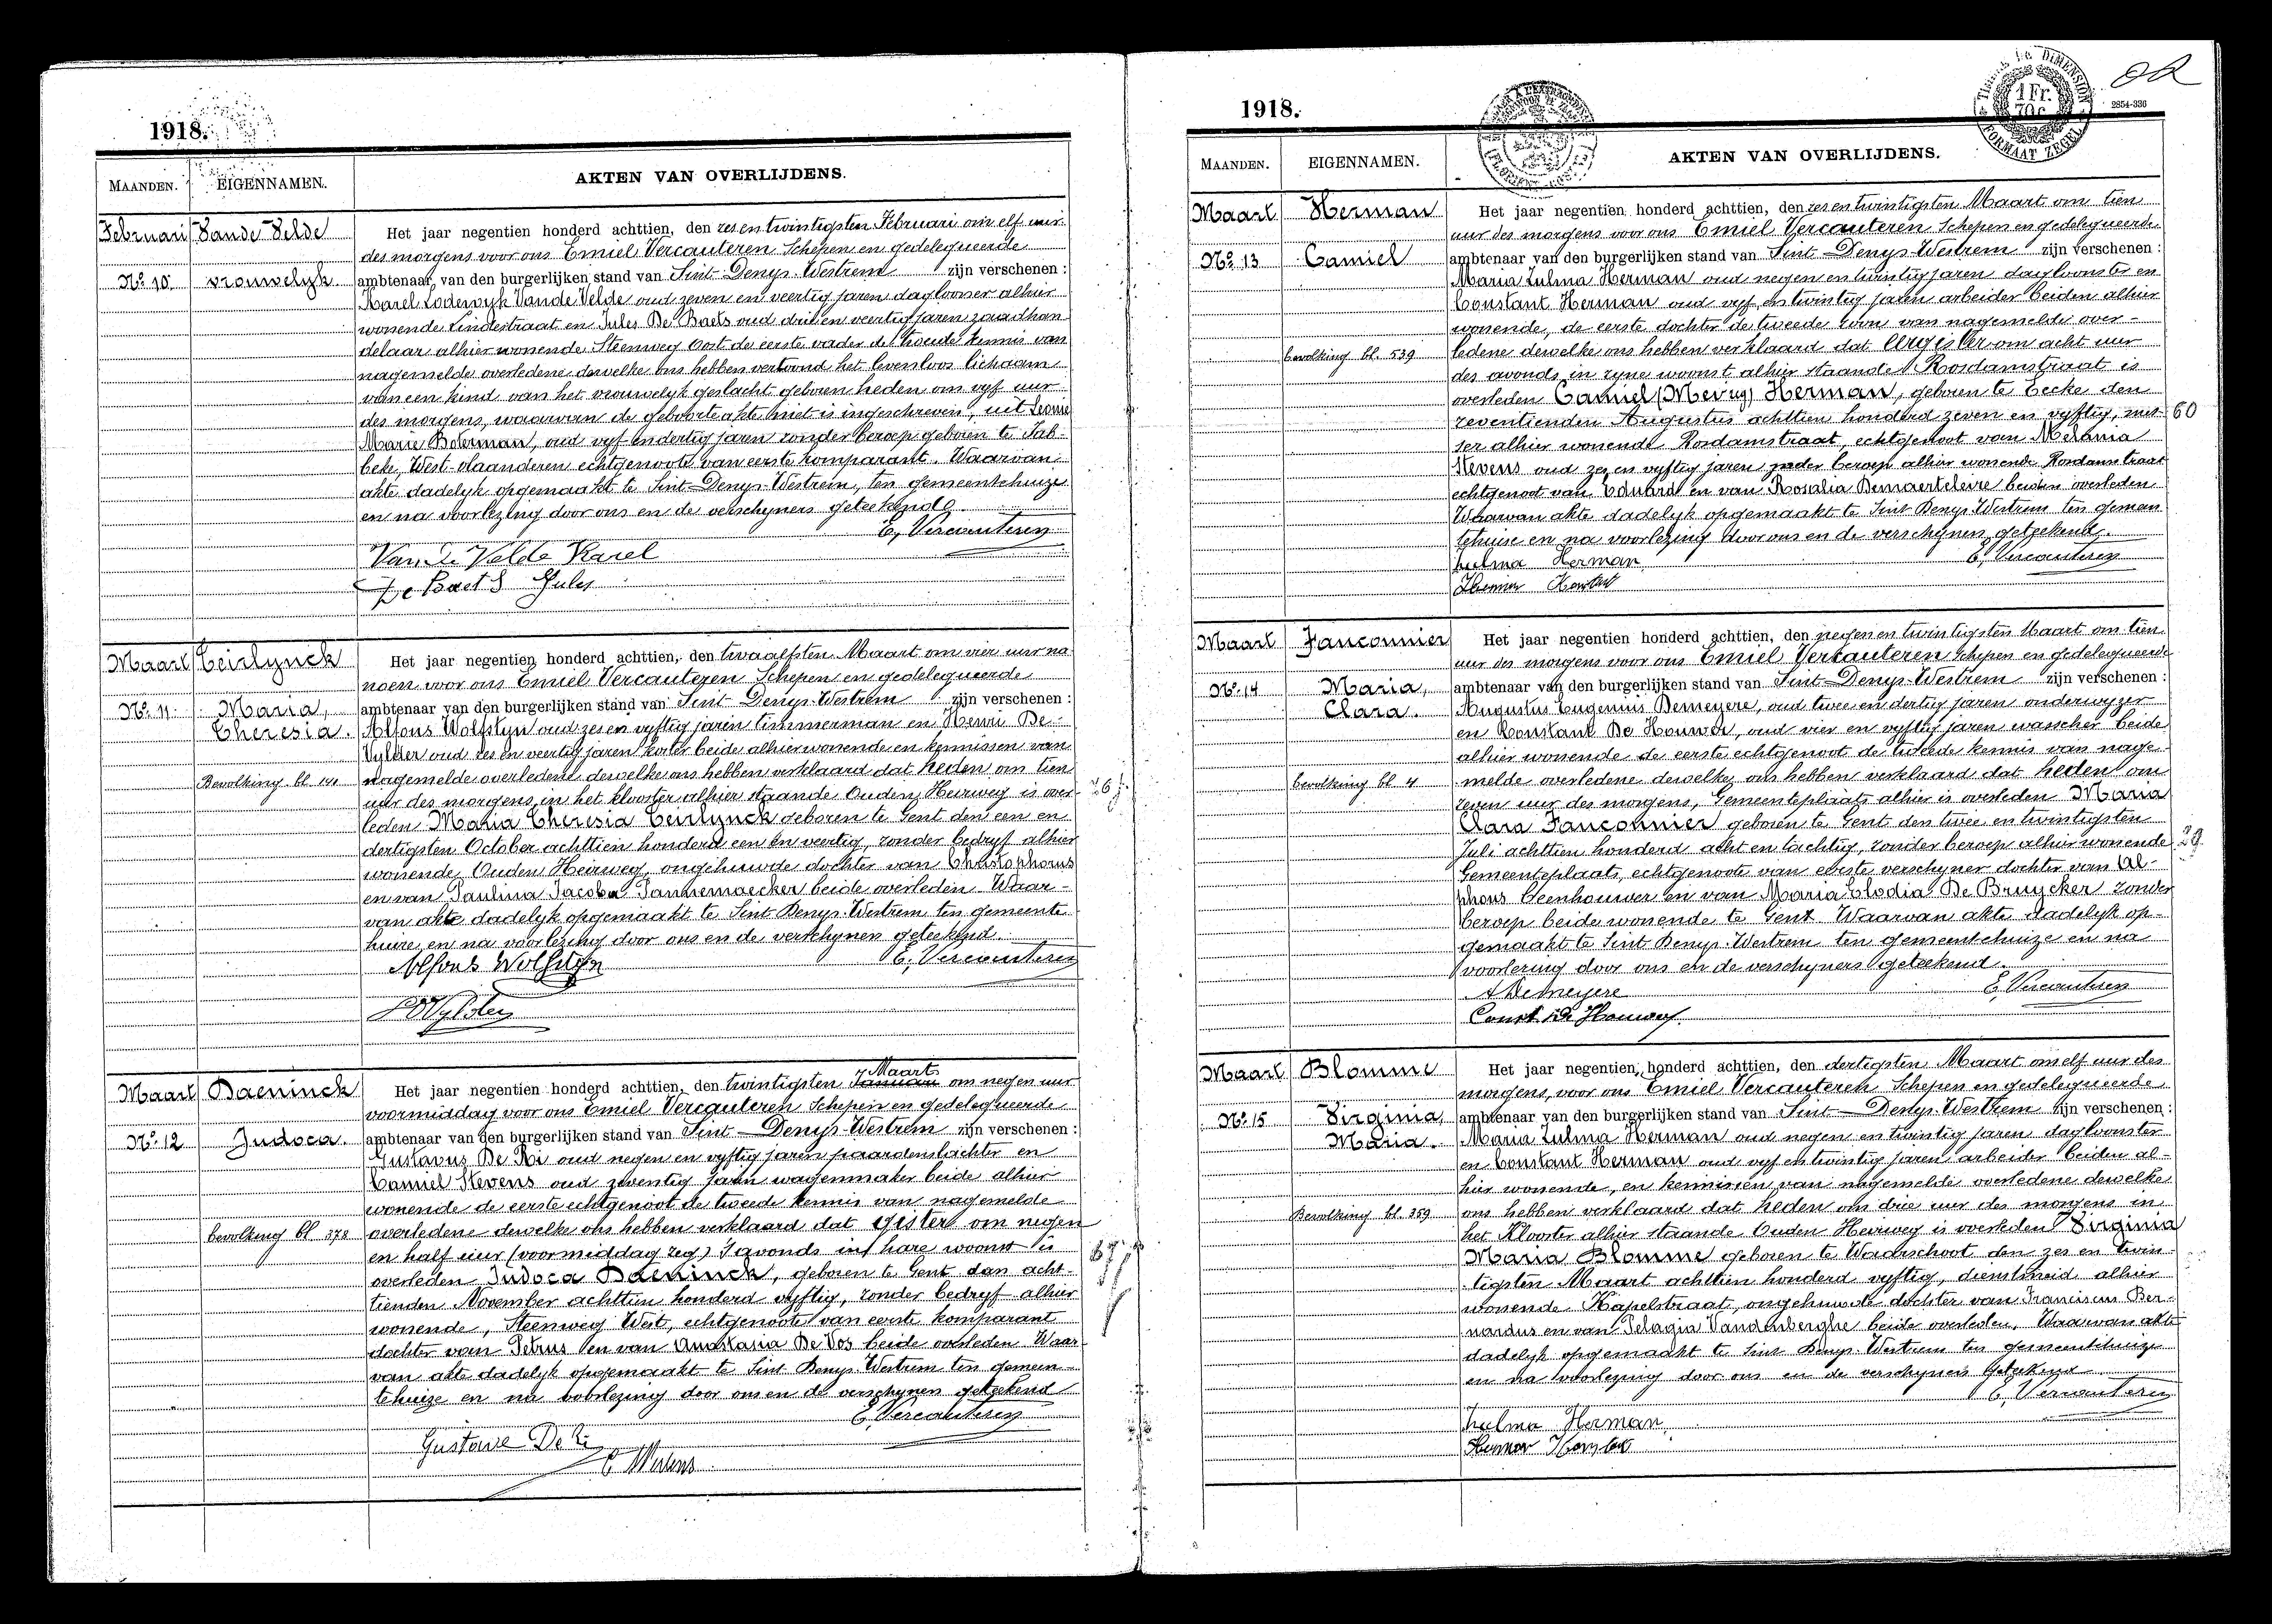 1918.
MAANDEN. EIGENNAMEN. AKTEN VAN OVERLIJDENS.
Februari Vande Velde Het jaar negentien honderd achttien, den zes en twintigsten Februari om elf uur
des morgens voor ons Emiel Vercauteren Schepen en gedelegueerde
No 10 vrouwelyk ambtenaar van den burgerlijken stand van Sint-Denys-Westrem zijn verschenen :
Karel Lodewyk Vande Velde oud zeven en veertig jaren daglooner alhier
wonende Lindestraat en Jules De Baets oud drie en veertig jaren zaadhan
delaar alhier wonende Steenweg Oost de eerste vader de tweede kennis van
nagemelde overledene dewelke ons hebben vertoond het levenloos lichaam
van een kind van het vrouwelyk geslacht geboren heden om vyf uur
des morgens, waarvan de geboorteakte niet is ingeschreven, uit Leonie
Marie Boterman, oud vyf en dertig jaren zonder beroep geboren te Jab-
beke, West-vlaanderen echtgenoote van eerste komparant. Waarvan
akte dadelyk opgemaakt te Sint-Denys-Westrem, ten gemeentehuize
en na voorlezing door ons en de verschyners geteekend.
E, Vercauteren
Van de Velde Karel
De Baets Jules
Maart Teirlynck Het jaar negentien honderd achttien, den twaalfsten Maart om vier uur na
noen voor ons Emiel Vercauteren Schepen en gedelegueerde
No 11 Maria, ambtenaar van den burgerlijken stand van Sint-Denys-Westrem zijn verschenen :
Theresia. Alfons Wolfstyn oud zes en vyftig jaren timmerman en Henri De
Vylder oud zes en veertig jaren koster beide alhier wonende en kennissen van
Bevolking bl 141 nagemelde overledene dewelke ons hebben verklaard dat heden om tien
uur des morgens, in het klooster alhier staande Ouden Heirweg is over
leden Maria Theresia Teirlynck geboren te Gent den een en
dertigsten October achttien honderd een en veertig, zonder bedryf alhier
wonende Ouden Heirweg, ongehuwde dochter van Christophorus
en van Paulina Jacoba Pannemaecker beide overleden. Waar-
van akte dadelyk opgemaakt te Sint Denys-Westrem ten gemeente
huize en na voorlezing door ons en de verschyners geteekend.
Alfons Wolfstyn E, Vercauteren
Maart Daeninck Het jaar negentien honderd achttien, den twintigsten Januari Maart om negen uur
voormiddag voor ons Emiel Vercauteren Schepen en gedelegueerde
No 12 Judoca. ambtenaar van den burgerlijken stand van Sint-Denys-Westrem zijn verschenen :
Gustavus De Ri oud negen en vyftig jaren paardenslachter en
Camiel Stevens oud zeventig jaren wagenmaker beide alhier
wonende de eerste echtgenoot de tweede kennis van nagemelde
bevolking bl 378 overledene dewelke ons hebben verklaard dat gister om negen
en half uur (voormiddag zeg) 's avonds in hare woonst is
overleden Judoca Daeninck, geboren te Gent den acht-
tienden November achttien honderd vyftig, zonder bedryf alhier
wonende, Steenweg West, echtgenoote van eerste komparant
dochter van Petrus en van Anastasia De Vos beide overleden. Waar
van akte dadelyk opgemaakt te Sint Denys-Westrem ten gemeen-
tehuize en na voorlezing door ons en de verschyners geteekend
E, Vercauteren
Gustave De Ri
1918.
1 Fr.
70 c.
2854-336
MAANDEN. EIGENNAMEN. AKTEN VAN OVERLIJDENS.
Maart Herman Het jaar negentien honderd achttien, den zes en twintigsten Maart om tien
uur des morgens voor ons Emiel Vercauteren Schepen en gedelegueerde
No 13 Camiel ambtenaar van den burgerlijken stand van Sint-Denys-Westrem zijn verschenen :
Maria Zulma Herman oud negen en twintig jaren dagloonster en
Constant Herman oud vyf en twintig jaren arbeider beiden alhier
wonende, de eerste dochter de tweede zoon van nagemelde over-
bevolking bl. 539 ledene dewelke ons hebben verklaard dat eergister om acht uur
des avonds in zyne woonst alhier staande Rosdamstraat is
overleden Camiel Herman, geboren te Eecke den
zeventienden Augustus achttien honderd zeven en vyftig, 60
alhier wonende Rosdamstraat, echtgenoot van Melania
Stevens oud zes en vyftig jaren zonder beroep alhier wonende Rosdamstraat
echtgenoot van Eduard en van Rosalia Demaerteleire beiden overleden
Waarvan akte dadelyk opgemaakt te Sint Denys-Westrem ten gemeen
tehuize en na voorlezing door ons en de verschyners geteekend.
Zulma Herman E, Vercauteren
Maart Fauconnier Het jaar negentien honderd achttien, den negen en twintigsten Maart om tien
uur des morgens voor ons Emiel Vercauteren Schepen en gedelegueerde
No 14 Maria, ambtenaar van den burgerlijken stand van Sint-Denys-Westrem zijn verschenen :
Clara. Augustus Eugenius Demeyere, oud twee en dertig jaren onderwyzer
en Constant De Houwer, oud vier en vyftig jaren wasscher beide
alhier wonende de eerste echtgenoot de tweede kennis van nage
bevolking bl 4 melde overledene dewelke ons hebben verklaard dat heden om
zeven uur des morgens, Gemeenteplaats alhier is overleden Maria
Clara Fauconnier geboren te Gent den twee en twintigsten
Juli achttien honderd acht en tachtig, zonder beroep alhier wonende 29
Gemeenteplaats, echtgenoote van eerste verschyner dochter van Al-
phons beenhouwer en van Maria Elodia De Bruycker zonder
beroep beide wonende te Gent. Waarvan akte dadelyk op-
gemaakt te Sint Denys-Westrem ten gemeentehuize en na
voorlezing door ons en de verschyners geteekend.
A Demeyere E, Vercauteren
Maart Blomme Het jaar negentien honderd achttien, den dertigsten Maart om elf uur des
morgens, voor ons Emiel Vercauteren Schepen en gedelegueerde
No 15 Virginia, ambtenaar van den burgerlijken stand van Sint-Denys-Westrem zijn verschenen :
Maria. Maria Zulma Herman oud negen en twintig jaren dagloonster
en Constant Herman oud vyf en twintig jaren arbeider beiden al-
hier wonende, en kennissen van nagemelde overledene dewelke
Bevolking bl. 359 ons hebben verklaard dat heden om drie uur des morgens in
het Klooster alhier staande Ouden Heirweg is overleden Virginia
Maria Blomme geboren te Waarschoot den zes en twin-
tigsten Maart achttien honderd vyftig, dienstmeid alhier
wonende Kapelstraat, ongehuwde dochter van Franciscus Ber-
nardus en van Pelagia Vandenberghe beide overleden, Waarvan akte
dadelyk opgemaakt te Sint Denys-Westrem ten gemeentehuize
en na voorlezing door ons en de verschyners geteekend
E, Vercauteren
Zulma Herman